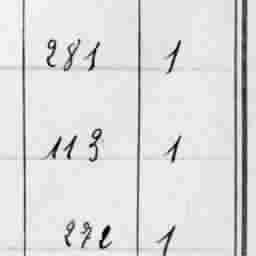 281 1
113 1
272 1